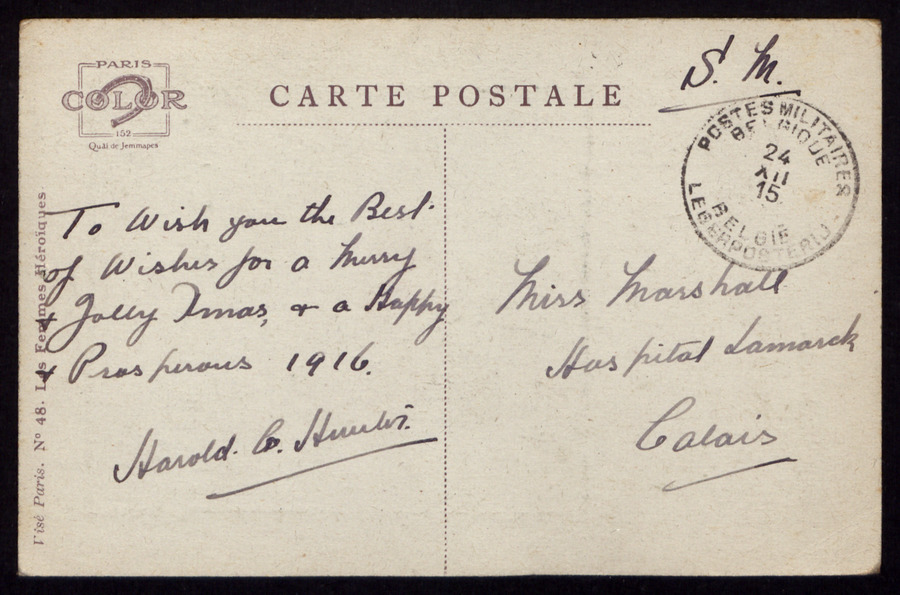 PARIS
COLOR
152
Quai de Jemmapes
CARTE POSTALE
S. M.
POSTES MILITAIRES
BELGIQUE
24
XII
15
BELGIË
LEGERPOSTERIJ
To Wish you the Best
of Wishes for a Merry
& Jolly Xmas, & a Happy
& Prosperous 1916.
Harold. C.
Miss Marshall
Hospital Lamarck
Calais
Visé Paris. Nº 48. Les Femmes Héroïques